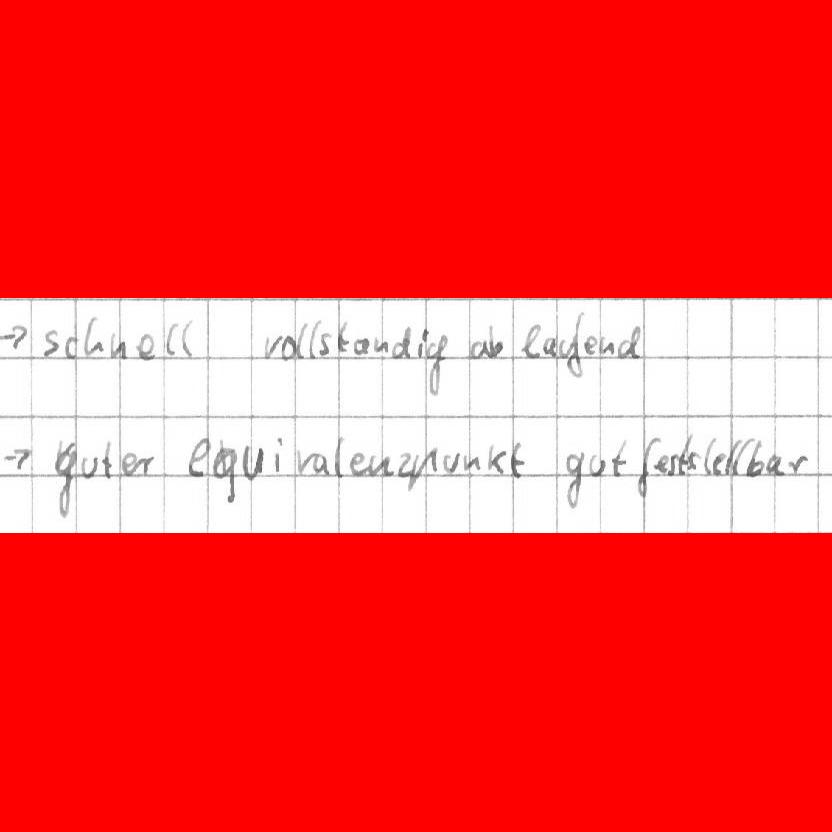 → schnell vollständig ab laufend
→ guter equivalenzpunkt gut feststellbar